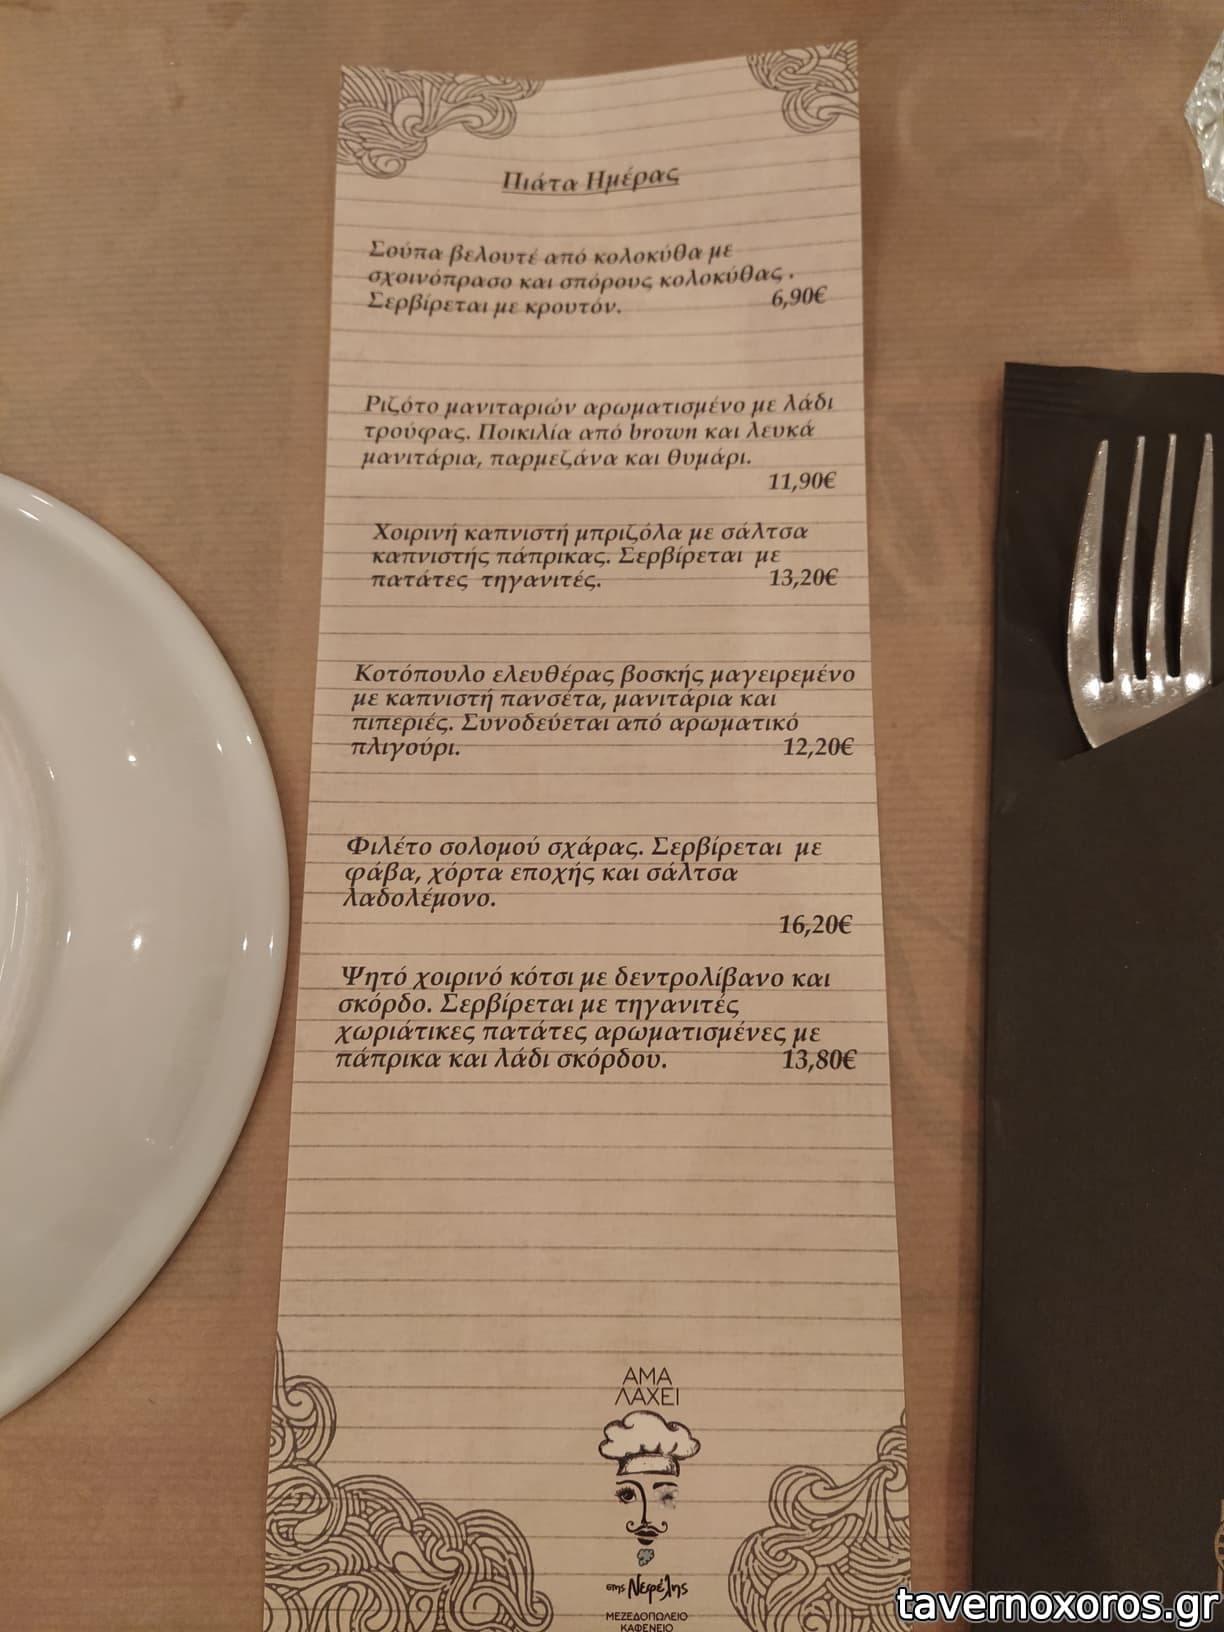 Πιάτα Ημέρας
Σούπα βελουτέ από κολοκύθα με
σχοινόπρασο και σπόρους κολοκύθας .
Σερβίρεται με κρουτόν. 6,90€
Ριζότο μανιταριών αρωματισμένο με λάδι
τρούφας. Ποικιλία από brown και λευκά
μανιτάρια, παρμεζάνα και θυμάρι.
11,90€
Χοιρινή καπνιστή μπριζόλα με σάλτσα
καπνιστής πάπρικας. Σερβίρεται με
πατάτες τηγανιτές. 13,20€
Κοτόπουλο ελευθέρας βοσκής μαγειρεμένο
με καπνιστή πανσέτα, μανιτάρια και
πιπεριές. Συνοδεύεται από αρωματικό
πλιγούρι. 12,20€
Φιλέτο σολομού σχάρας. Σερβίρεται με
φάβα, χόρτα εποχής και σάλτσα
λαδολέμονο.
16,20€
Ψητό χοιρινό κότσι με δεντρολίβανο και
σκόρδο. Σερβίρεται με τηγανιτές
χωριάτικες πατάτες αρωματισμένες με
πάπρικα και λάδι σκόρδου. 13,80€
ΑΜΑ
ΛΑΧΕΙ
στης Νεφέλης
ΜΕΖΕΔΟΠΩΛΕΙΟ
ΚΑΦΕΝΕΙΟ
tavernoxoros.gr